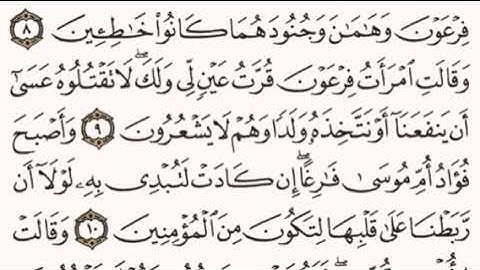 فِرْعَوْنَ وَهَٰمَٰنَ وَجُنُودَهُمَا كَانُوا۟ خَٰطِـِٔينَ ٨
وَقَالَتِ ٱمْرَأَتُ فِرْعَوْنَ قُرَّتُ عَيْنٍ لِّى وَلَكَ ۖ لَا تَقْتُلُوهُ عَسَىٰٓ
أَن يَنفَعَنَآ أَوْ نَتَّخِذَهُۥ وَلَدًا وَهُمْ لَا يَشْعُرُونَ ٩ وَأَصْبَحَ
فُؤَادُ أُمِّ مُوسَىٰ فَٰرِغًا ۖ إِن كَادَتْ لَتُبْدِى بِهِۦ لَوْلَآ أَن
رَّبَطْنَا عَلَىٰ قَلْبِهَا لِتَكُونَ مِنَ ٱلْمُؤْمِنِينَ ١٠ وَقَالَتْ